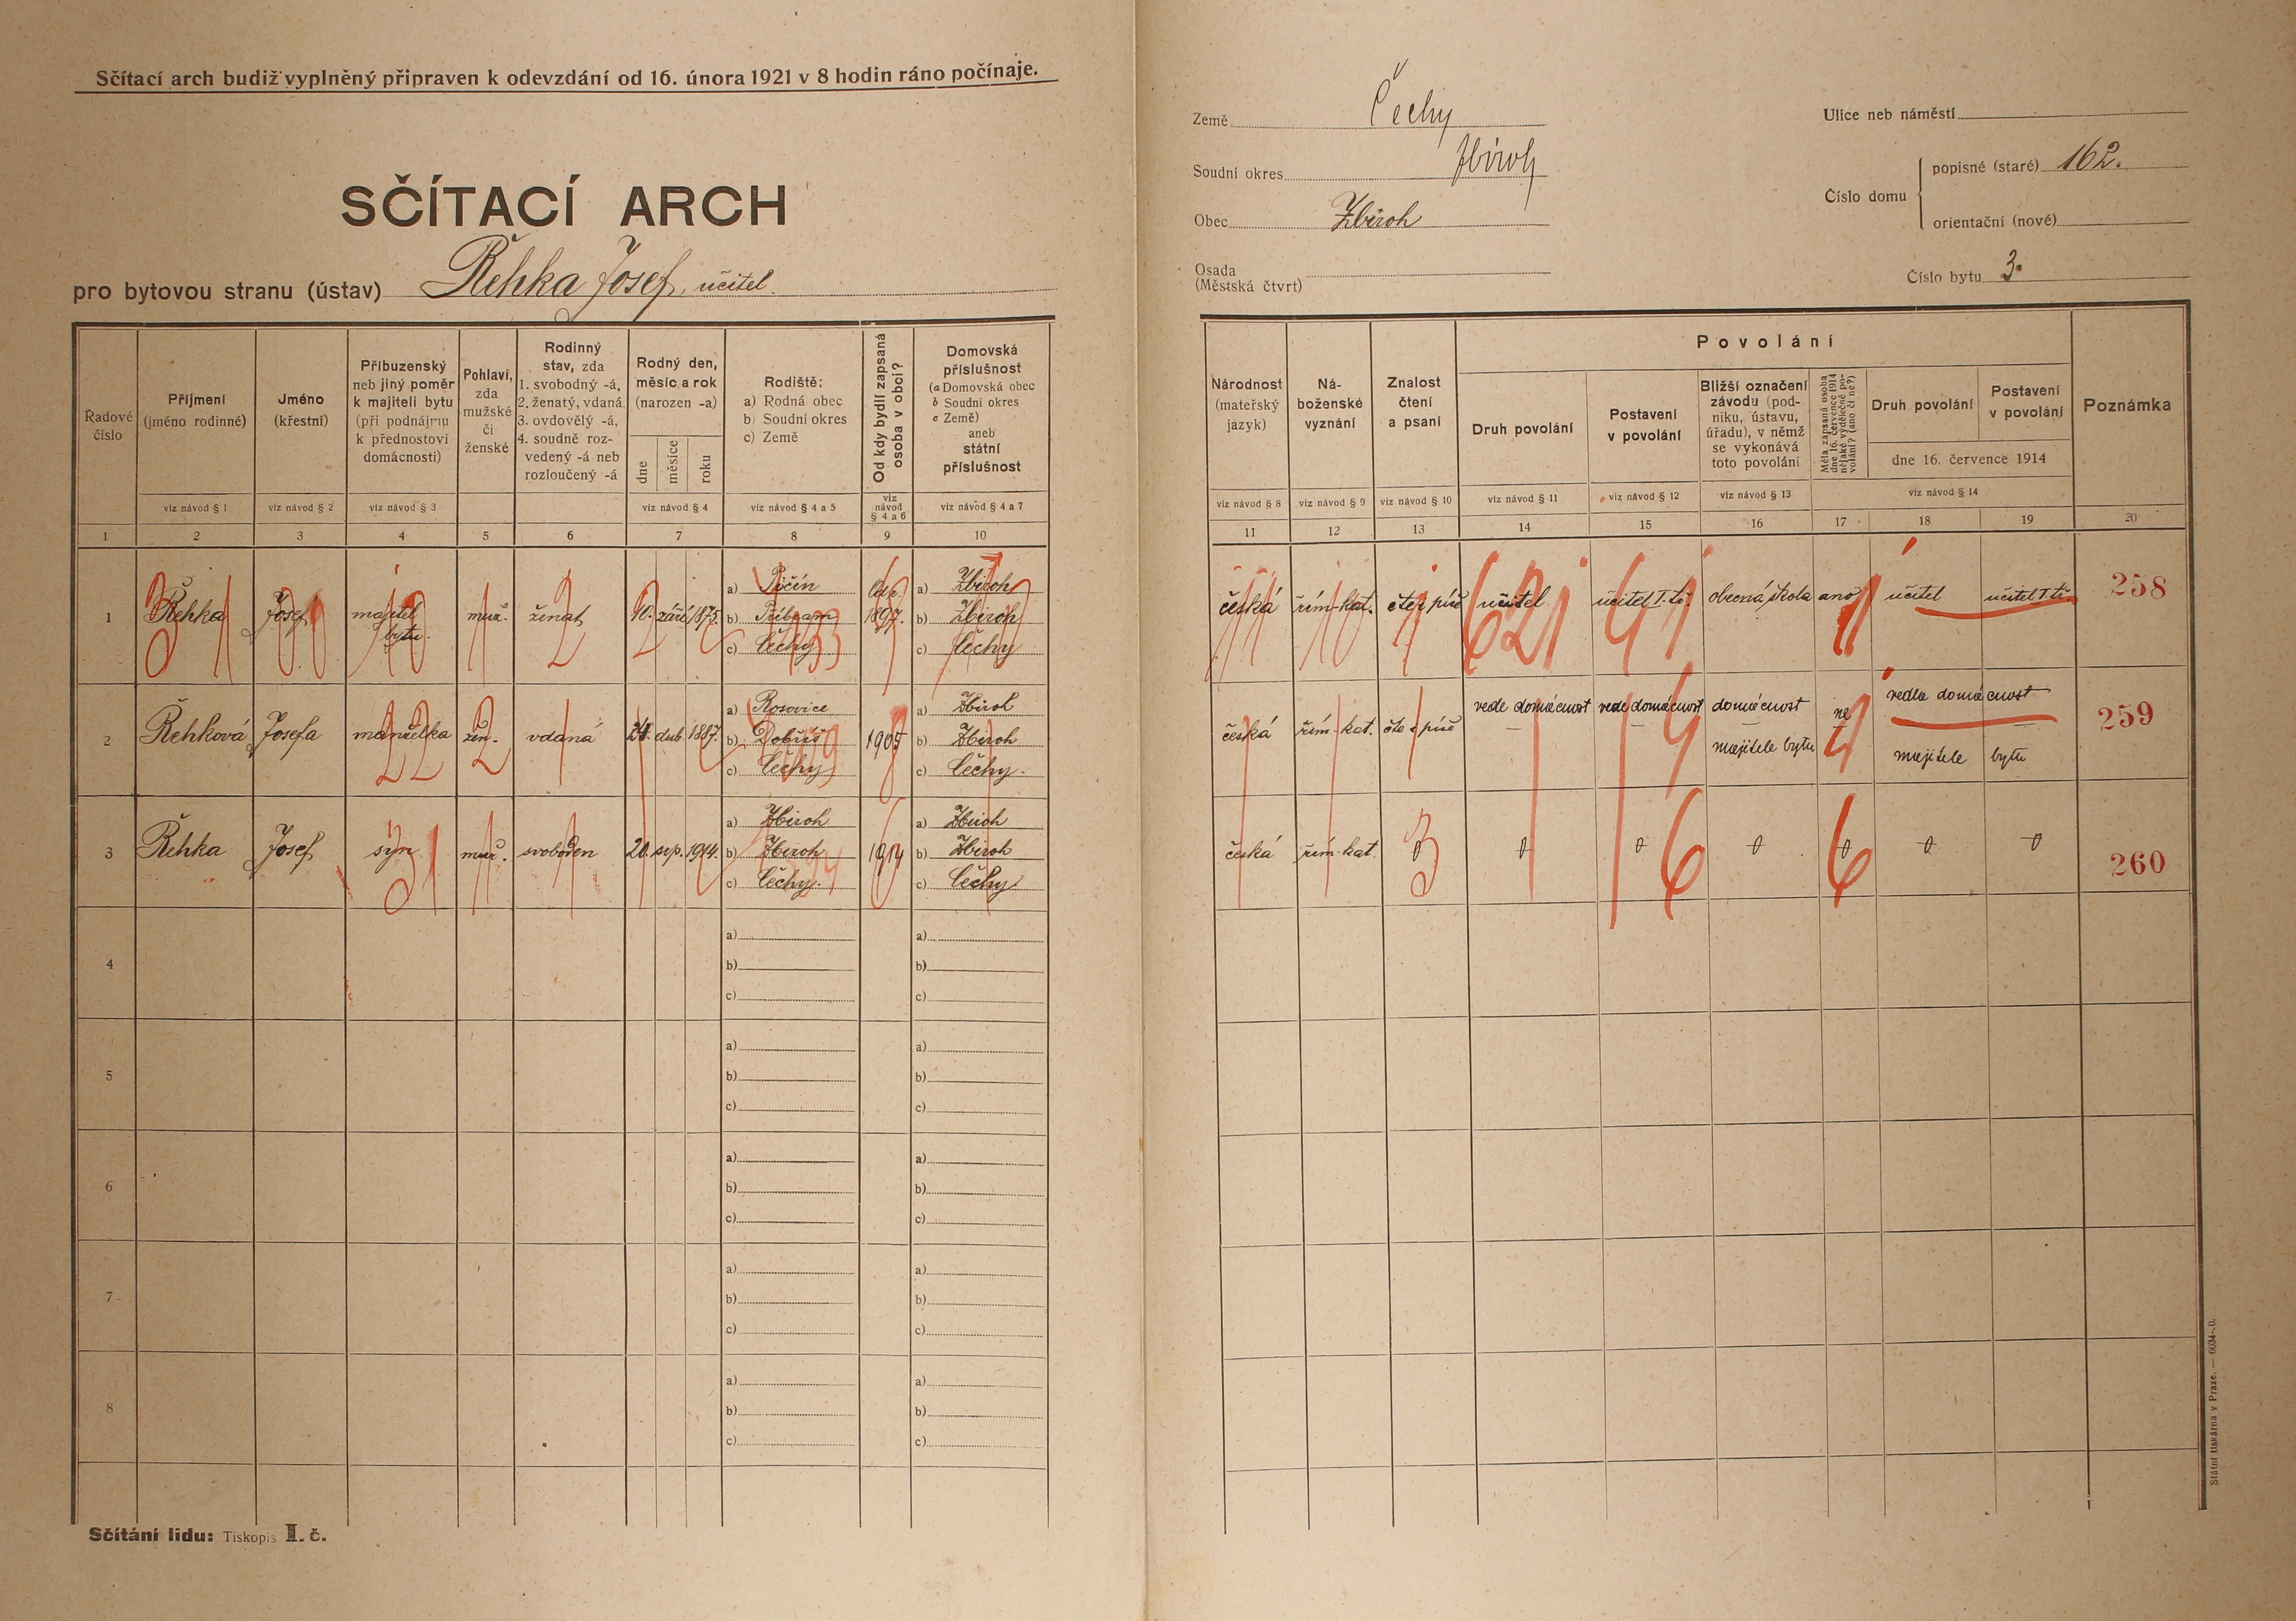 Sčítací arch budiž vyplněný připraven k odevzdání od 16. února 1921 v 8 hodin ráno počínaje.
SČÍTACÍ ARCH
pro bytovou stranu (ústav) Řehka Josef, učitel.
Země Čechy
Soudní okres Zbiroh
Obec Zbiroh
Osada
(Městská čtvrt)
Ulice neb náměstí
Číslo domu
popisné (staré) 162.
orientační (nové)
Číslo bytu 3.
Řadové
číslo
Příjmení
(jméno rodinné)
Jméno
(křestní)
Příbuzenský
neb jiný poměr
k majiteli bytu
(při podnájmu
k přednostovi
domácnosti)
Pohlaví,
zda
mužské
či
ženské
Rodinný
stav, zda
1. svobodný -á,
2. ženatý, vdaná
3. ovdovělý -á,
4. soudně roz-
vedený -á neb
rozloučený -á
Rodný den,
měsíc a rok
(narozen -a)
dne
měsíce
roku
Rodiště:
a) Rodná obec
b) Soudní okres
c) Země
Od kdy bydlí zapsaná
osoba v obci?
Domovská
příslušnost
(a Domovská obec
b Soudní okres
c Země)
aneb
státní
příslušnost
viz návod § 1
viz návod § 2
viz návod § 3
viz návod § 4
viz návod § 4 a 5
viz
návod
§ 4 a 6
viz návod § 4 a 7
1 2 3 4 5 6 7 8 9 10
Národnost
(mateřský
jazyk)
Ná-
boženské
vyznání
Znalost
čtení
a psaní
Povolání
Druh povolání
Postavení
v povolání
Bližší označení
závodu (pod-
niku, ústavu,
úřadu), v němž
se vykonává
toto povolání
Měla zapsaná osoba
dne 16. července 1914
nějaké výdělečné po-
volání? (ano či ne?)
Druh povolání
Postavení
v povolání
dne 16. července 1914
Poznámka
viz návod § 8
viz návod § 9
viz návod § 10
viz návod § 11
viz návod § 12
viz návod § 13
viz návod § 14
11 12 13 14 15 16 17 18 19 20
1 Řehka Josef majitel
bytu.
muž. ženat 10. září 1875.
a) Pičín
b) Příbram
c) Čechy
1897.
a) Zbiroh
b) Zbiroh
c) Čechy
česká řím-kat. čte i píše učitel učitel I. tř. obecná škola ano učitel učitel I. tř. 258
2 Řehková Josefa manželka žen. vdaná dub. 1887.
a) Rosovice
b) Dobříš
c) Čechy
1905
a) Zbiroh
b) Zbiroh
c) Čechy.
česká řím-kat. čte i píše vede domácnost vede domácnost domácnost
majitele bytu
ne vedla domácnost
majitele bytu
259
3 Řehka Josef syn muž. svoboden 20. srp. 1914.
a) Zbiroh
b) Zbiroh
c) Čechy.
1914
a) Zbiroh
b) Zbiroh
c) Čechy.
česká řím-kat. 0 0 0 0 0 0 0 260
4
a)
b)
c)
a)
b)
c)
5
a)
b)
c)
a)
b)
c)
6
a)
b)
c)
a)
b)
c)
7
a)
b)
c)
a)
b)
c)
8
a)
b)
c)
a)
b)
c)
Sčítání lidu: Tiskopis I. č.
Státní tiskárna v Praze. — 6034-.0.